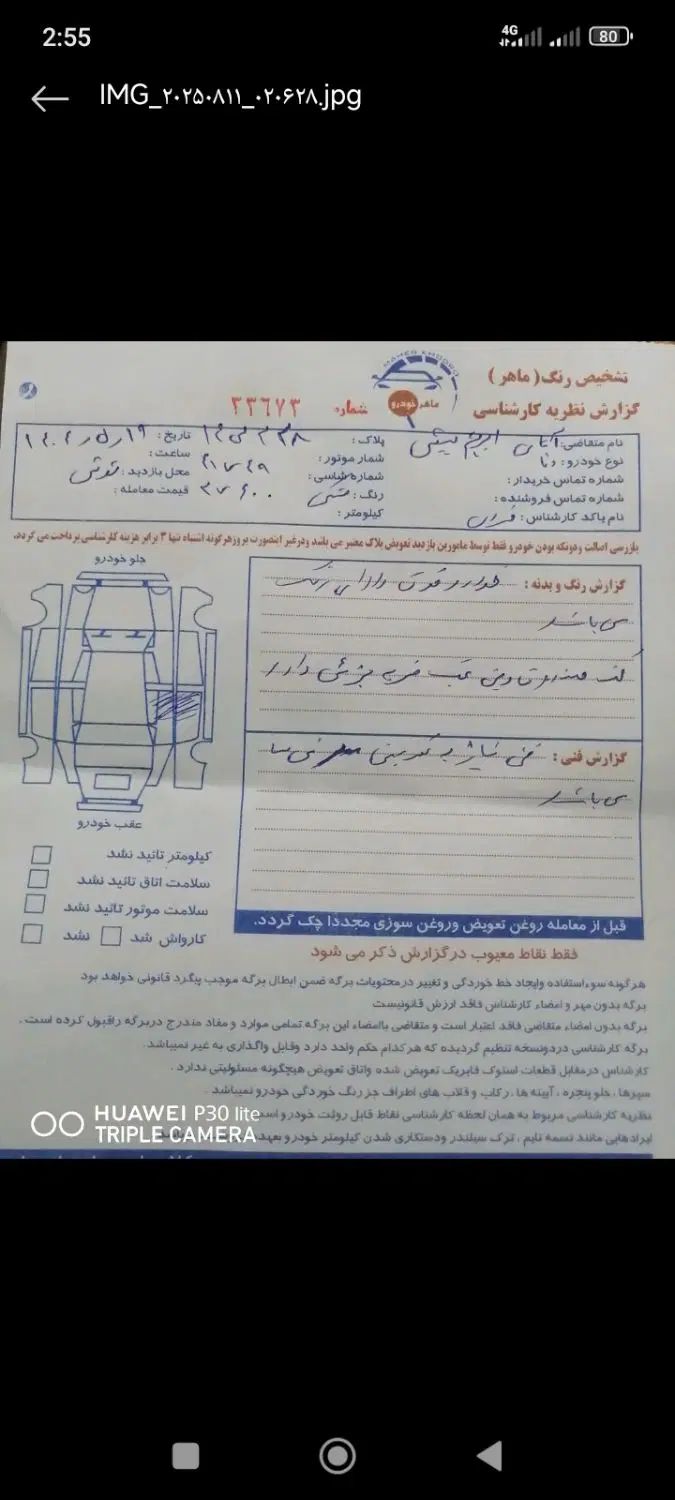 2:55
4G
80
IMG_۲۰۲۵۰۸۱۱_۰۲۰۶۲۸.jpg
تشخیص رنگ (ماهر)
MAHER KHODRO
ماهر خودرو
گزارش نظریه کارشناسی
شماره ۳۳۶۷۳
نام متقاضی: آقای
پلاک:
تاریخ:
نوع خودرو: دنا
شماره موتور:
ساعت:
شماره تماس خریدار:
شماره شاسی:
محل بازدید:
شماره تماس فروشنده:
رنگ: مشکی
قیمت معامله:
نام یاکد کارشناس:
کیلومتر:
بازرسی اصالت ودوتکه بودن خودرو فقط توسط مامورین بازدید تعویض پلاک معتبر می باشد ودرغیر اینصورت بروزهرگونه اشتباه تنها ۳ برابر هزینه کارشناسی پرداخت می گردد.
جلو خودرو
گزارش رنگ و بدنه: خودرو فوق دارای رنگ
می باشد
کف صندوق عقب ضربه جزئی دارد
گزارش فنی: فنی نیاز به
می باشد
عقب خودرو
کیلومتر تائید نشد
سلامت اتاق تائید نشد
سلامت موتور تائید نشد
کارواش شد نشد
قبل از معامله روغن تعویض وروغن سوزی مجددا چک گردد.
فقط نقاط معیوب در گزارش ذکر می شود
هرگونه سوءاستفاده وایجاد خط خوردگی و تغییر در محتویات برگه ضمن ابطال برگه موجب پیگرد قانونی خواهد بود
برگه بدون مهر و امضاء کارشناس فاقد ارزش قانونیست
برگه بدون امضاء متقاضی فاقد اعتبار است و متقاضی باامضاء این برگه تمامی موارد و مفاد مندرج دربرگه راقبول کرده است.
برگه کارشناسی دردونسخه تنظیم گردیده که هرکدام حکم واحد دارد وقابل واگذاری به غیر نمیباشد.
کارشناس در مقابل قطعات استوک فابریک تعویض شده واتاق تعویض هیچگونه مسئولیتی ندارد.
سپرها، جلو پنجره، آیینه ها، رکاب و قلاب های اطراف جز رنگ خوردگی خودرو نمیباشد.
نظریه کارشناسی مربوط به همان لحظه کارشناسی نقاط قابل روئت خودرو است
ایرادهایی مانند تسمه تایم، ترک سیلندر ودستکاری شدن کیلومتر خودرو بعهده
HUAWEI P30 lite
TRIPLE CAMERA